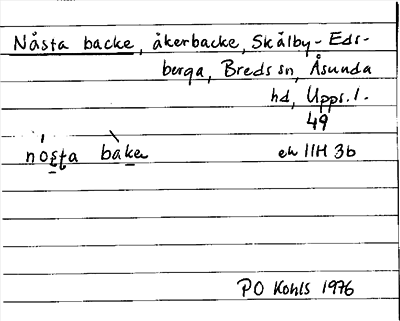 Nåsta backe, åkerbacke, Skålby - Eds-
berga, Breds sn, Åsunda
hd, Upps. l.
49
nosta bàken ek 11H 3b
PO Kohls 1976